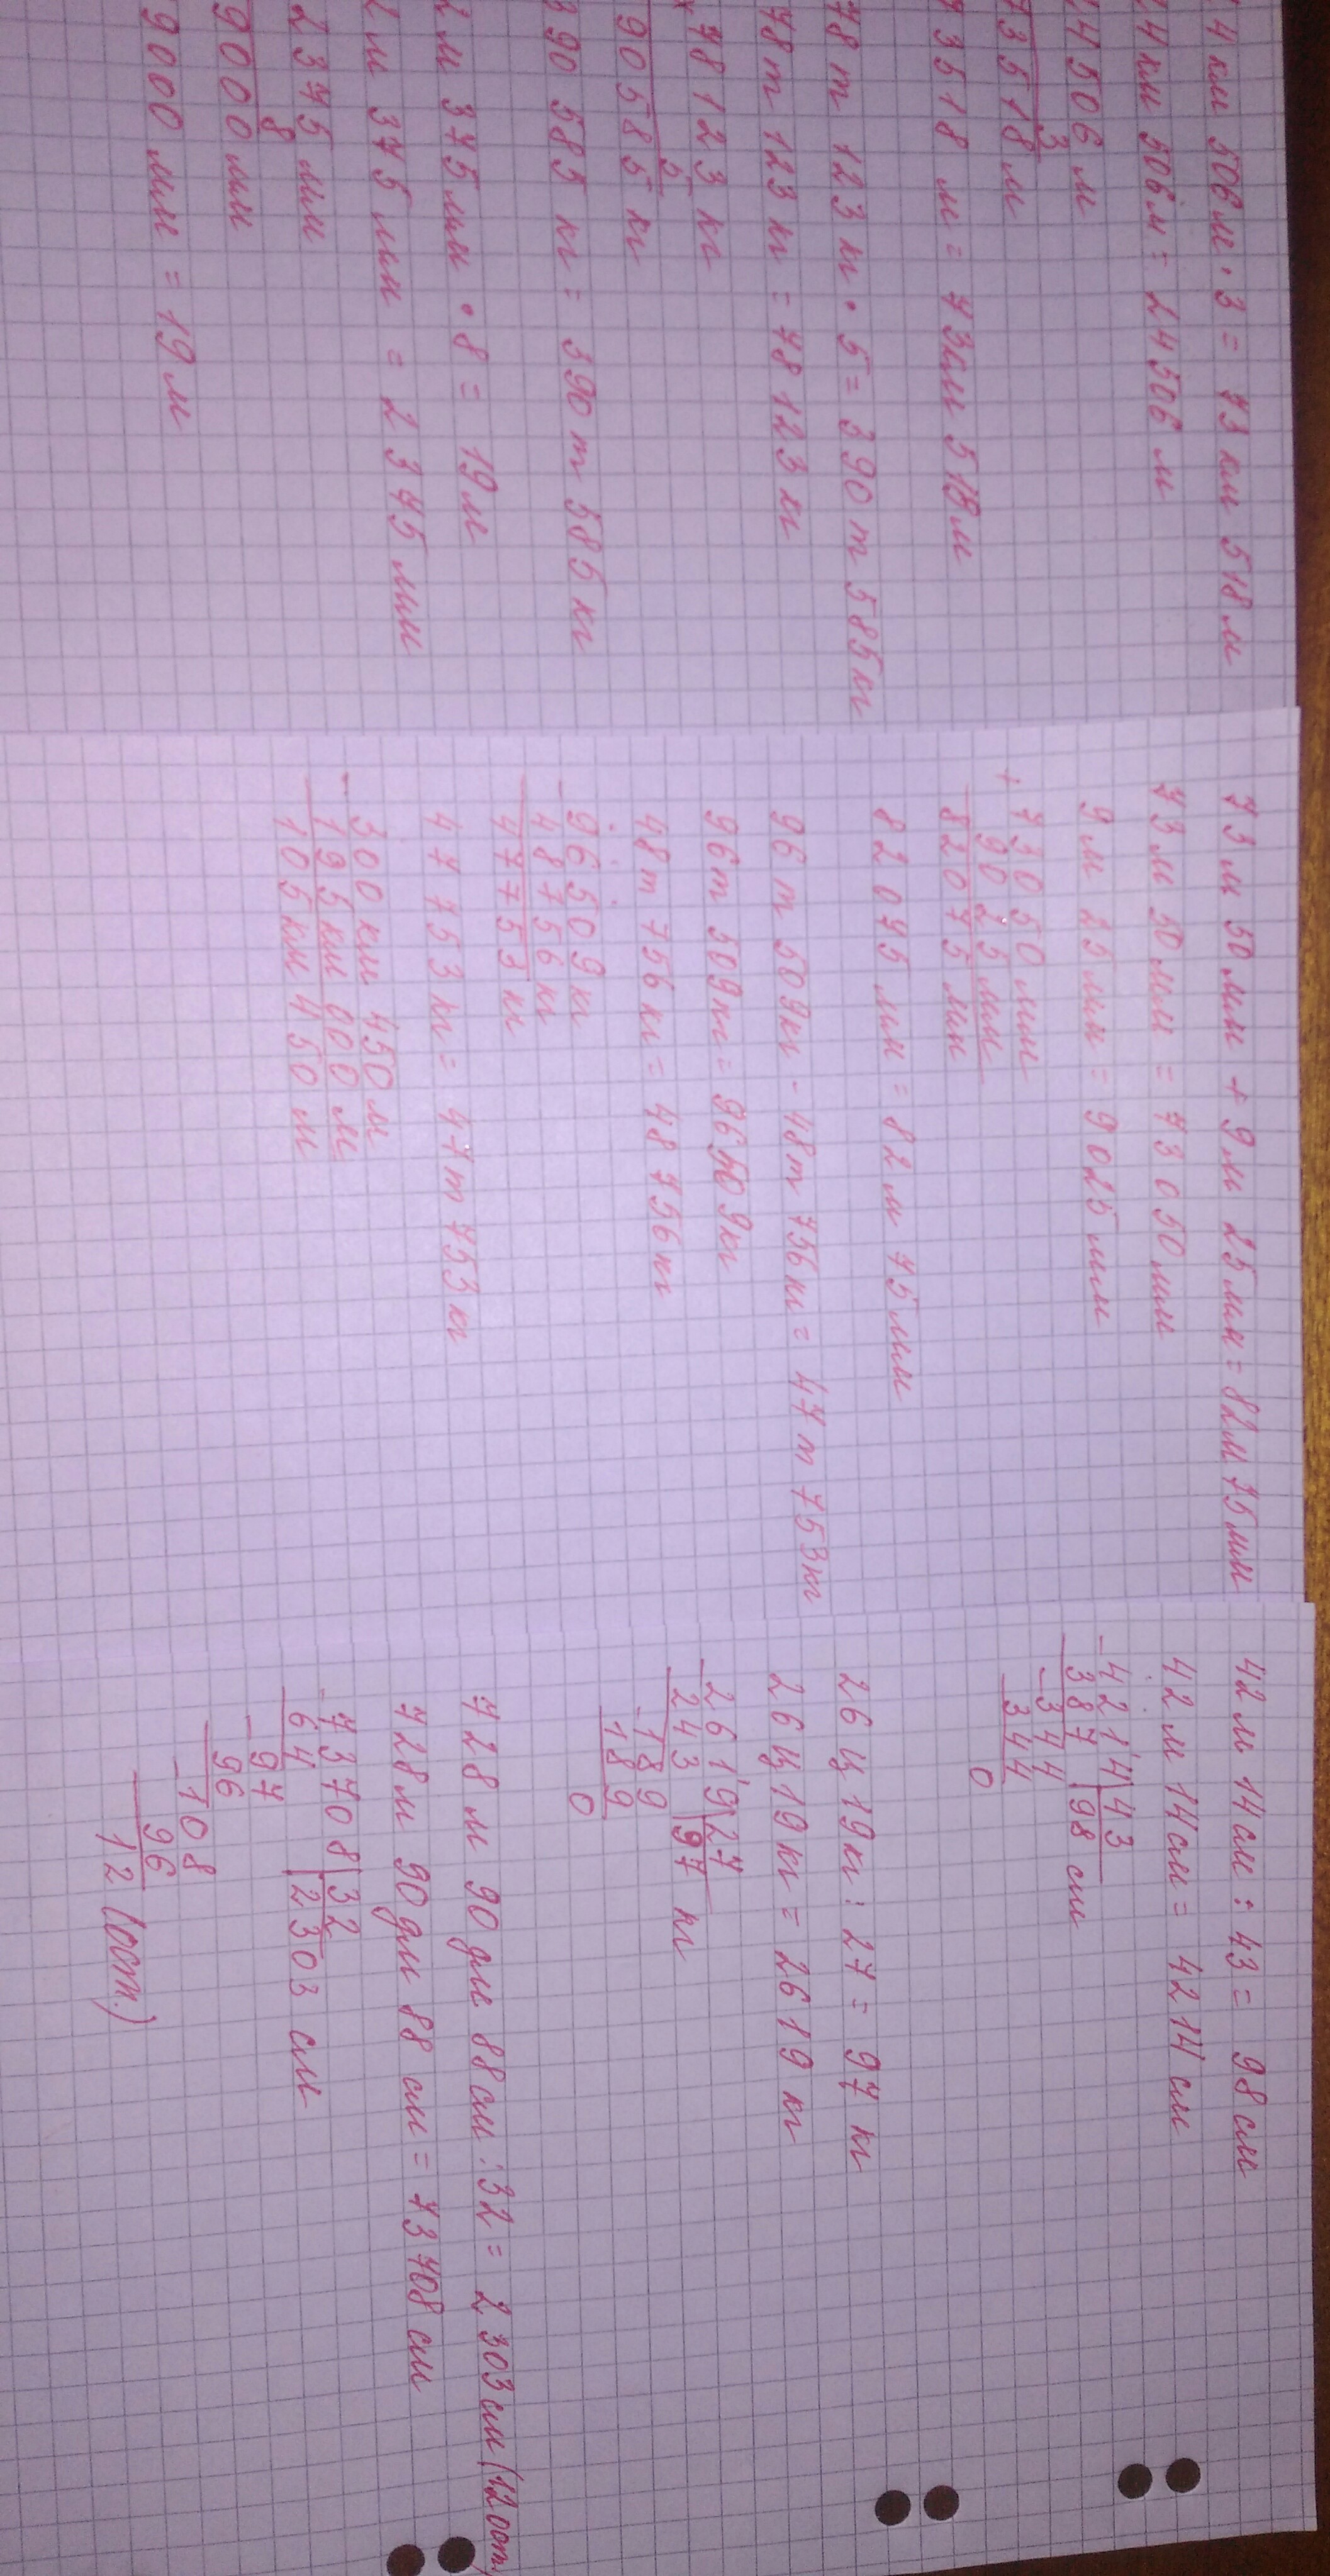 4 км 506 м · 3 = 73 км 518 м
4 км 506 м = 24506 м
4506 м
3
73518 м
73518 м = 73 км 518 м
78 т 123 кг · 5 = 390 т 585 кг
78 т 123 кг = 78123 кг
× 78123 кг
5
90585 кг
390585 кг = 390 т 585 кг
2 м 375 мм · 8 = 19 м
2 м 375 мм = 2375 мм
2375 мм
8
9000 мм
9000 мм = 19 м
73 м 50 мм + 9 м 25 мм = 82 м 75 мм
73 м 50 мм = 73050 мм
9 м 25 мм = 9025 мм
+ 73050 мм
9025 мм
82075 мм
82075 мм = 82 м 75 мм
96 т 509 кг - 48 т 756 кг = 47 т 753 кг
96 т 509 кг = 96509 кг
48 т 756 кг = 48756 кг
- 96509 кг
48756 кг
47753 кг
47753 кг = 47 т 753 кг
- 300 км 450 м
195 км 000 м
105 км 450 м
42 м 14 см : 43 = 98 см
42 м 14 см = 4214 см
- 4214 | 43
387 | 98 см
- 344
344
0
26 ц 19 кг : 27 = 97 кг
26 ц 19 кг = 2619 кг
- 2619 | 27
243 | 97 кг
- 189
189
0
728 м 90 дм 88 см : 32 = 2303 см (12 ост)
728 м 90 дм 88 см = 73708 см
- 73708 | 32
64 | 2303 см
- 97
96
- 108
96
12 (ост.)